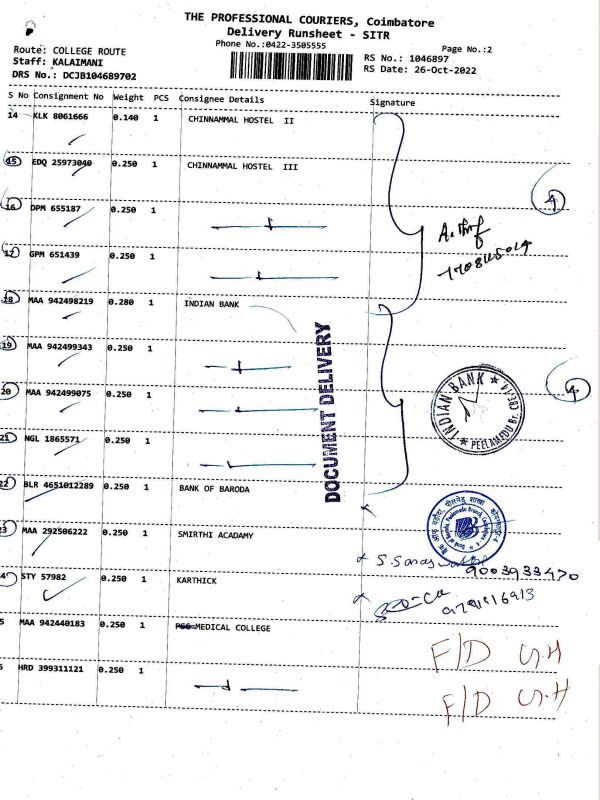 THE PROFESSIONAL COURIERS, Coimbatore
Delivery Runsheet - SITR
Phone No.:0422-3505555
Page No.:2
Route: COLLEGE ROUTE
Staff: KALAIMANI
DRS No.: DCJB104689702
RS No.: 1046897
RS Date: 26-Oct-2022
S No Consignment No Weight PCS Consignee Details Signature
14 KLK 8061666 0.140 1 CHINNAMMAL HOSTEL II
15 EDQ 25973040 0.250 1 CHINNAMMAL HOSTEL III
16 DPM 655187 0.250 1
4
17 GPM 651439 0.250 1
18 MAA 942498219 0.280 1 INDIAN BANK
19 MAA 942499343 0.250 1
20 MAA 942499075 0.250 1
4
21 NGL 1865571 0.250 1
DOCUMENT DELIVERY
INDIAN BANK
PEELAMEDU Br.
22 BLR 4651012289 0.250 1 BANK OF BARODA
23 MAA 292506222 0.250 1 SMIRTHI ACADAMY
9003933470
24 STY 57982 0.250 1 KARTHICK
5 MAA 942440183 0.250 1 PSG MEDICAL COLLEGE
F/D G.H
6 HRD 399311121 0.250 1
F/D G.H